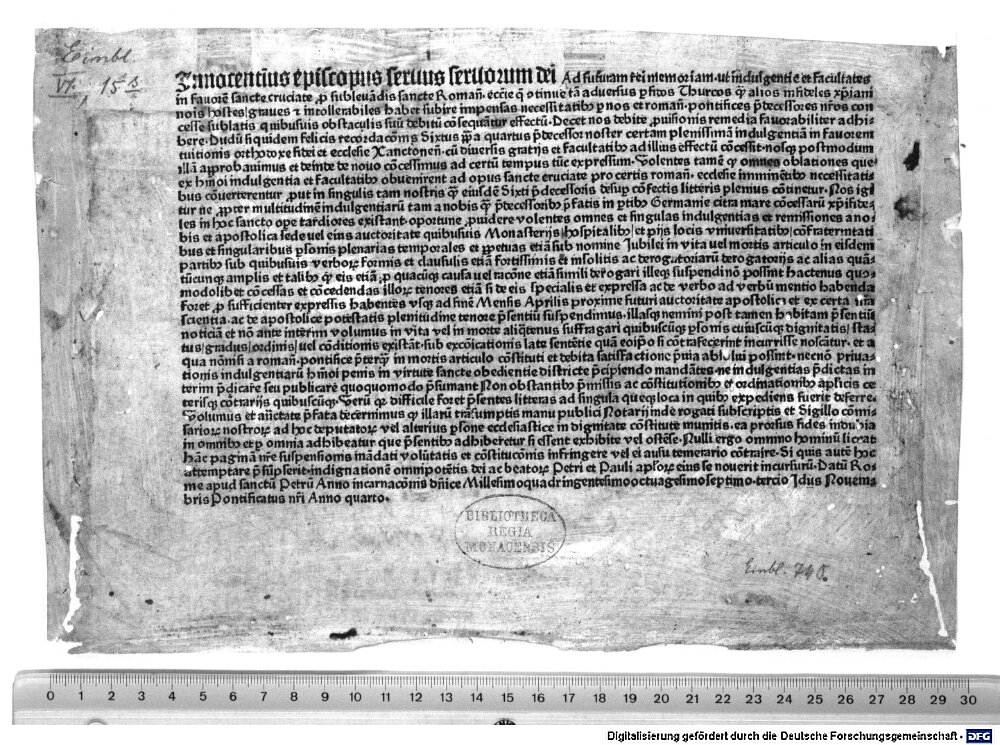 Einbl.
VI, 15
Innocentius episcopus seruus seruorum dei Ad futuram rei memoriam. ut indulgentie et facultates
in fauorē sancte cruciate ꝓ subleuādis sancte Romañ. eccl̄ie q̄ ↄtinue tā aduersus ꝑfitos Thurcos q̄ alios infideles xp̄iani
nois hostes/ graues ⁊ intollerabiles habet subire impensas necessitatibꝫ ꝑ nos et romañ. pontifices p̄decessores nr̄os con
cesse sublatis quibusuis obstaculis suū debitū cōsequātur effectū. Decet nos debite ꝓuisionis remedia fauorabiliter adhi
bere. Dudū siquidem felicis recordacōnis Sixtus pp̄a quartus p̄decessor noster certam plenissimā indulgentiā in fauorem
tuitionis orthodoxe fidei et ecclesie Xanctoneñ. cū diuersis gratijs et facultatibꝫ ad illius effectū cōcessit. nosqꝫ postmodum
illā approbauimus et deinde de nouo cōcessimus ad certū tempus tūc expressum. Volentes tamē ꝙ omnes oblationes que
ex hmōi indulgentia et facultatibꝫ obuenirent ad opus sancte cruciate pro certis romañ. ecclesie imminētibꝫ necessitati
bus cōuerterentur ꝓut in singulis tam nostris q̄ eiusdē Sixti p̄decessoris desuꝑ cōfectis litteris plenius cōtinetur. Nos igi
tur ne ꝓpter multitudinē indulgentiarū tam a nobis q̄ p̄decessoribꝫ p̄fatis in ꝑtibꝫ Germanie citra mare cōcessarū xp̄ifide
les in hoc sancto oꝑe tardiores existant. oportune ꝓuidere volentes omnes et singulas indulgentias et remissiones a no
bis et apostolica sede uel eius auctoritate quibusuis Monasterijs/ hospitalibꝫ/ et pijs locis vniuersitatibꝫ/ cōfraternitati
bus et singularibus ꝑsonis plenarias temporales et ꝑpetuas etiā sub nomine Iubilei in vita uel mortis articulo in eisdem
partibꝫ sub quibusuis verboꝝ formis et clausulis etiā fortissimis ⁊ insolitis ac derogatoriarū derogatorijs ac alias quā-
tūcunqꝫ amplis et talibꝫ q̄ eis etiā ꝓ quacūqꝫ causa uel racōne etiā simili derogari illeqꝫ suspendi nō possint hactenus quo-
modolibꝫ cōcessas et cōcedendas illoꝝ tenores etiā si de eis specialis et expressa ac de verbo ad verbū mentio habenda
foret ꝓ sufficienter expressis habentes vsqꝫ ad finē Mensis Aprilis proxime futuri auctoritate apostolica et ex certa nr̄a
scientia. ac de apostolice potestatis plenitudine tenore p̄sentiū suspendimus. illasqꝫ nemini post tamen habitam p̄sentiū
noticiā et nō ante interim volumus in vita vel in morte aliq̄tenus suffragari quibuscūqꝫ ꝑsonis cuiuscūqꝫ dignitatis/ sta-
tus/ gradus/ ordinis/ uel cōditionis existāt. sub excōicationis late sentētie quā eoip̄o si contrafecerint incurrisse noscātur. et a
qua nōnisi a romañ. pontifice p̄terqꝫ in mortis articulo cōstituti et debita satisfactione p̄uia absolui possint. necnō priua-
tionis indulgentiarū hmōi penis in virtute sancte obedientie districte p̄cipiendo mandātes. ne indulgentias p̄dictas in
terim p̄dicare seu publicare quoquomodo p̄sumant Non obstantibꝫ p̄missis ac cōstitutionibꝫ et ordinationibꝫ apl̄icis ce
terisqꝫ cōtrarijs quibuscūqꝫ. Verū qꝫ difficile foret p̄sentes litteras ad singula queqꝫ loca in quibꝫ expediens fuerit deferre.
Volumus et auc̄tate p̄fata decernimus ꝙ illarū trāsumptis manu publici Notarij inde rogati subscriptis et Sigillo cōmis-
sarioꝝ nostroꝝ ad hoc deputatoꝝ vel alterius ꝑsone ecclesiastice in dignitate cōstitute munitis. ea prorsus fides indubia
in omnibꝫ et ꝑ omnia adhibeatur que p̄sentibꝫ adhiberetur si essent exhibite vel ostēse. Nulli ergo omnino hominū liceat
hāc paginā nr̄e suspensionis mādati volūtatis et cōstitucōnis infringere vel ei ausu temerario cōtraire. Si quis autē hoc
attemptare p̄sūpserit. indignationē omnipotētis dei ac beatoꝝ Petri et Pauli apl̄oꝝ eius se nouerit incursurū. Datū Ro-
me apud sanctū Petrū Anno incarnacōnis dn̄ice Millesimoquadringentesimooctuagesimoseptimo. tercio Idus Nouem-
bris Pontificatus nr̄i Anno quarto.
BIBLIOTHECA
REGIA
MONACENSIS
Einbl. 740.
0 1 2 3 4 5 6 7 8 9 10 11 12 13 14 15 16 17 18 19 20 21 22 23 24 25 26 27 28 29 30
Digitalisierung gefördert durch die Deutsche Forschungsgemeinschaft - DFG